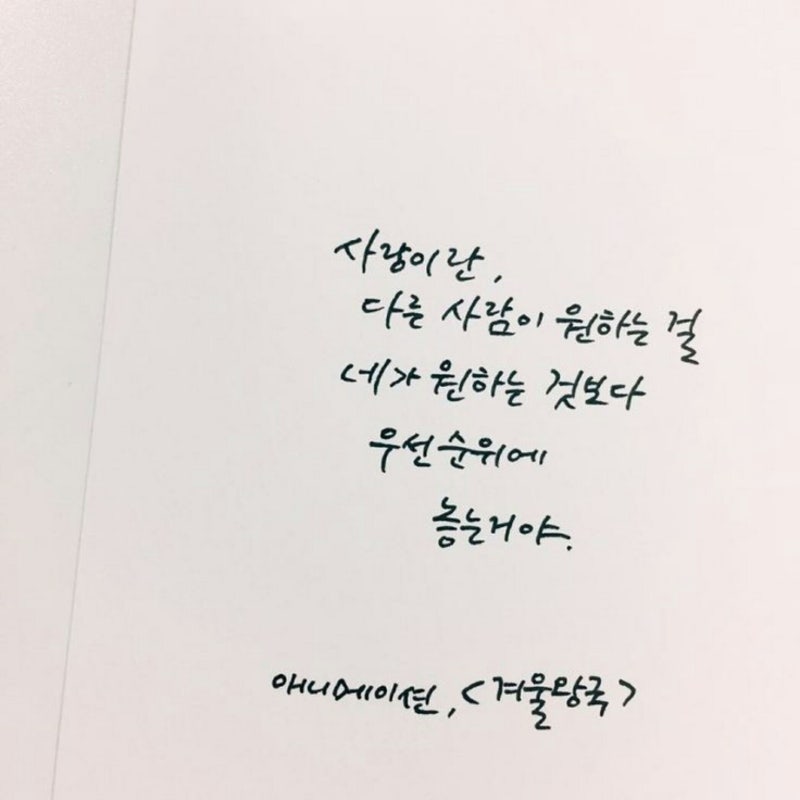 사랑이란,
다른 사람이 원하는 걸
네가 원하는 것보다
우선순위에
놓는거야.
애니메이션, <겨울왕국>